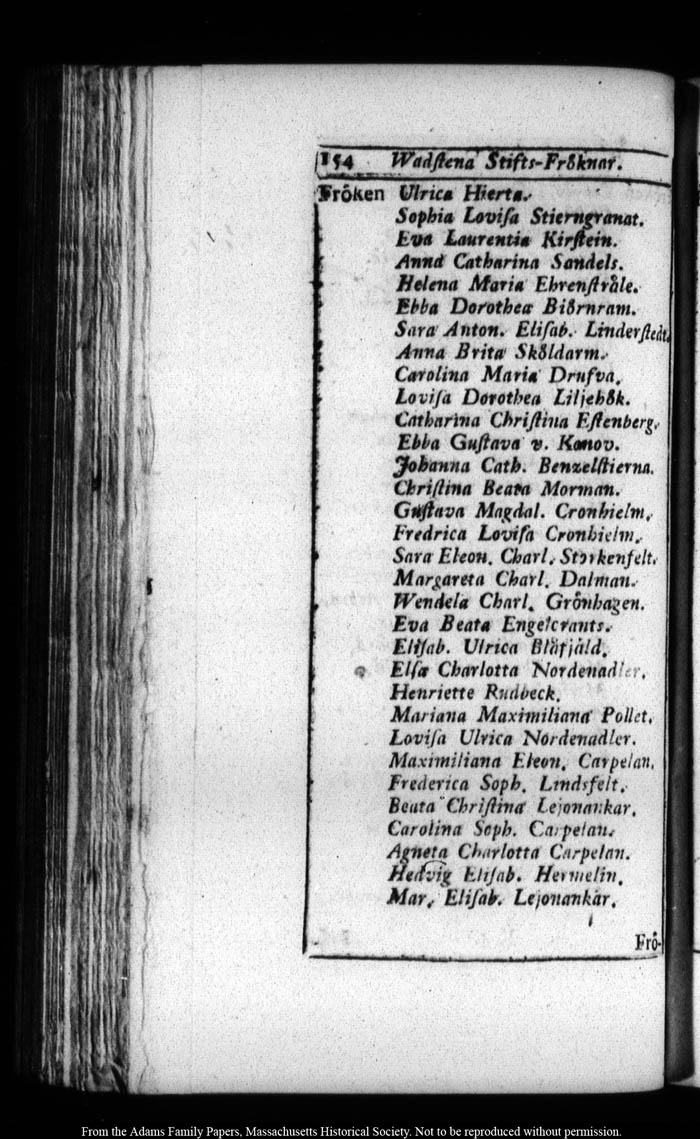 154 Wadſtena Stifts-Fröknar.
Fröken Ulrica Hierta.
Sophia Loviſa Stierngranat.
Eva Laurentia Kirſtein.
Anna Catharina Sandels.
Helena Maria Ehrenſtråle.
Ebba Dorothea Biörnram.
Sara Anton. Eliſab. Linderſtedt.
Anna Brita Sköldarm.
Carolina Maria Drufva.
Loviſa Dorothea Liljehök.
Catharina Chriſtina Eſtenberg.
Ebba Guſtava v. Konov.
Johanna Cath. Benzelſtierna.
Chriſtina Beata Morman.
Guſtava Magdal. Cronhielm.
Fredrica Loviſa Cronhielm.
Sara Eleon. Charl. Storkenfelt.
Margareta Charl. Dalman.
Wendela Charl. Grönhagen.
Eva Beata Engelcrants.
Eliſab. Ulrica Blåfjäld.
Elſa Charlotta Nordenadler.
Henriette Rudbeck.
Mariana Maximiliana Pollet.
Loviſa Ulrica Nordenadler.
Maximiliana Eleon. Carpelan.
Frederica Soph. Lindsfelt.
Beata Chriſtina Lejonankar.
Carolina Soph. Carpelan.
Agneta Charlotta Carpelan.
Hedvig Eliſab. Hermelin.
Mar. Eliſab. Lejonankar.
Frö-
From the Adams Family Papers, Massachusetts Historical Society. Not to be reproduced without permission.